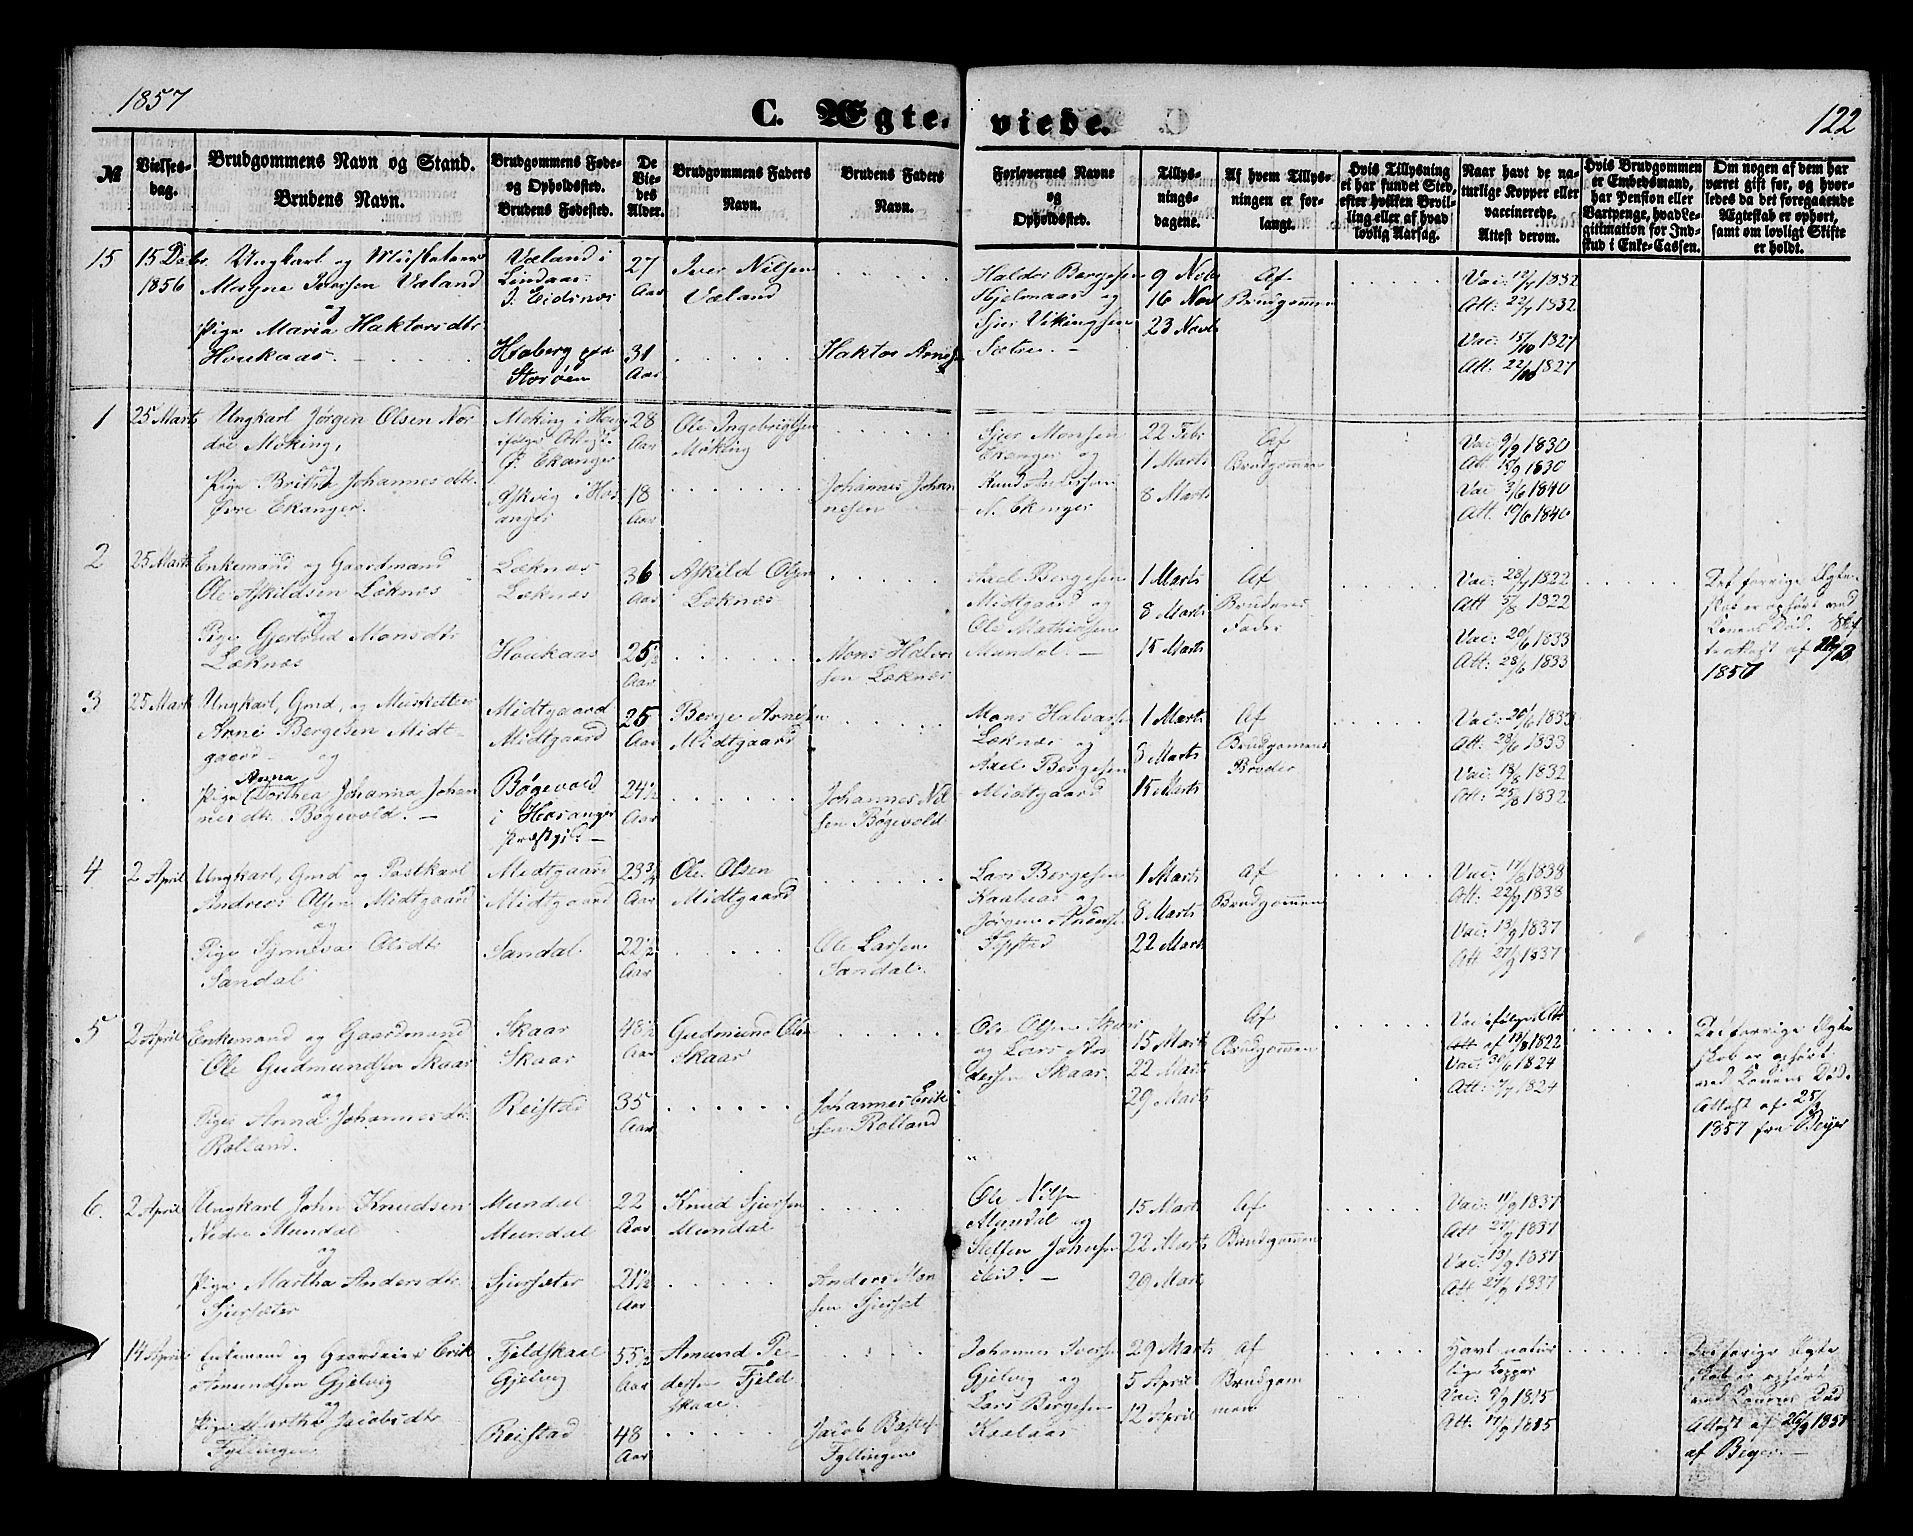 1857
122
C. Ægte- viede.
№
Vielses-
dag.
Brudgommens Navn og Stand.
Brudens Navn.
Brudgommens Føde-
og Opholdssted.
Brudens Fødested.
De
Vie-
des
Alder.
Brudgommens Faders
Navn.
Brudens Faders
Navn.
Forlovernes Navne
og
Opholdssted.
Tillys-
nings-
dagene.
Af hvem Tillys-
ningen er for-
langt.
Hvis Tillysning
ei har fundet Sted,
efter hvilken Bevil-
ling eller af hvad
lovlig Aarsag.
Naar havt de na-
turlige Kopper eller
vaccinerede.
Attest derom.
Hvis Brudgommen
er Embedsmand,
har Pension eller
Vartpenge, hvad Le-
gitimation for Ind-
skud i Enke-Cassen.
Om nogen af dem har
været gift før, og hvor-
ledes da det foregaaende
Ægteskab er ophørt,
samt om lovligt Skifte
er holdt.
15
15 Decbr.
1856
Ungkarl og Musketeer
Mogne Iversen Væland
og
Pige Maria Haktorsdtr
Houkaas
Væland i
Lindaas
I. Eidsnes
Hoberg paa
Storøen
27
Aar
31
Aar
Iver Nilsen
Væland
Haktor Arnesen
Haldor Bergesen
Hjelmaas og
Sjur Vikingsen
Sætre
9 Novb
16 Novb
23 Novb
Af
Brudgommen
Vac: 1832
Att: 1832
Vac: 15/10 1827
Att: 22/10 1827
1
25 Marts
Ungkarl Jørgen Olsen Nor
dre Møking,
og
Pige Britha Johannesdtr.
Øvre Ekanger.
Møking i Ho
Ø. Ekanger
i Hos
anger
28
Aar
18
Aar
Ole Ingebrigtsen
Møking
Johannes Johan
nesen
Sjur Monsen
Ekanger og
Knud Andersen
N. Ekanger
22 Febr
1 Marts
8 Marts
Af
Brudgommen
Vac 9/9 1830
Att 1830
Vac 3/6 1840
Att. 10/6 1840
2
25 Marts
Enkemand og Gaardmand
Ole Askildsen Læknes
og
Pige Gjertrud Monsdtr
Læknæs
Læknæs
Læknæs
Houkaas
36
Aar
25 1/2
Aar
Askild Olsen
Læknæs
Mons Halvor
sen Læknæs
Axel Bergesen
Midtgaard og
Ole Mathiesen
Mundal.
1 Marts
8 Marts
15 Marts
Af
Brudens
Fader
Vac: 1822
Att 5/8 1822
Vac: 20/6 1833
Att: 28/6 1833
Det forrige Ægte-
skab er ophørt ved
Konens Død. Skif
teattest af
1857
3
25 Marts
Ungkarl, Gmd, og Musketeer
Arne Bergesen Midt-
gaard og
Anna
Pige Dorthea Johanna Johan
nesdtr. Bøgevold.
Midtgaard
Midtgaard
Bøgevold
i Hosanger
Præstgjd.
25
Aar
24 1/2
Aar
Berge Arnesen
Midtgaard
Johannes Nil
sen Bøgevold
Mons Halvorsen
Læknæs og
Axel Bergesen
Midtgaard
1 Marts
8 Marts
15 Marts
Af
Brudgommens
Broder
Vac: 20/6 1833
Att: 28/6 1833
Vac: 18/8 1832
Att: 25/8 1832
4
2 April
Ungkarl, Gmd og Postkarl
Andreas Olsen Midtgaard
og
Pige Synneva Olsdtr
Sandal
Midtgaard
Midtgaard
Sandal
23 3/4
Aar
22 1/2
Aar
Ole Olsen
Midtgaard
Ole Larsen
Sandal.
Lars Bergesen
Kaalaas og
Jørgen
Fyestad
1 Marts
8 Marts
22 Marts
Af
Brudgommen
Vac: 1838
Att: 22/9 1838
Vac: 13/9 1837
Att 27/9 1837
5
2 April
Enkemand og Gaardmand
Ole Gudmundsen Skaar
og
Pige Anna Johannesdtr.
Rolland.
Skaar
Skaar
Reistad
48 1/2
Aar
35
Aar
Gudmund Olsen
Skaar
Johannes Erik
sen Rolland
Ole Olsen Skaar
og Lars An
dersen Skaar.
15 Marts
22 Marts
29 Marts
Af
Brudgommen
Vac ifølge Att
af 1822
Vac: 30/6 1824
Att: 7/7 1824
Det forrige Ægte
skab er ophørt
ved Konens Død.
Attest af 25/3
1857 fra Beyer
6.
2 April
Ungkarl John Knudsen
Nedre Mundal
og
Pige Martha Andersdtr.
Sjursæter
Mundal
Mundal
Sjursæter
22
Aar
21 1/2
Aar
Knud Sjursen
Mundal
Anders Mon
sen Sjursæt
Ole Nilsen
Mundal og
Steffen Johnsen
ibid.
15 Marts
22 Marts
29 Marts
Af
Brudgommen
Vac: 11/9 1837
Att 27/9 1837
Vac: 13/9 1837
Att 27/9 1837
14 April
Enkemand og Gaardeier Erik
Amundsen Gjelvig
og
Pige Martha Jacobsdtr
Fyllingen
Fjeldskaal
Gjelvig
Reistad
55 1/2
Aar
48
Aar
Amund Pe
dersen Fjeld
skaal
Jacob
Fyllingen
Johannes Iversen
Gjelvig og
Lars Bergesen
Kaalaas
29 Marts
5 April
12 April
Af
Brudgom
men
Havt natur
lige Kopper
Vac: 9/9 1815
Att: 17/9 1815
Det forrige Ægte
skab er ophørt
ved Konens Død
Attest af 26/3 1857
af Beyer.